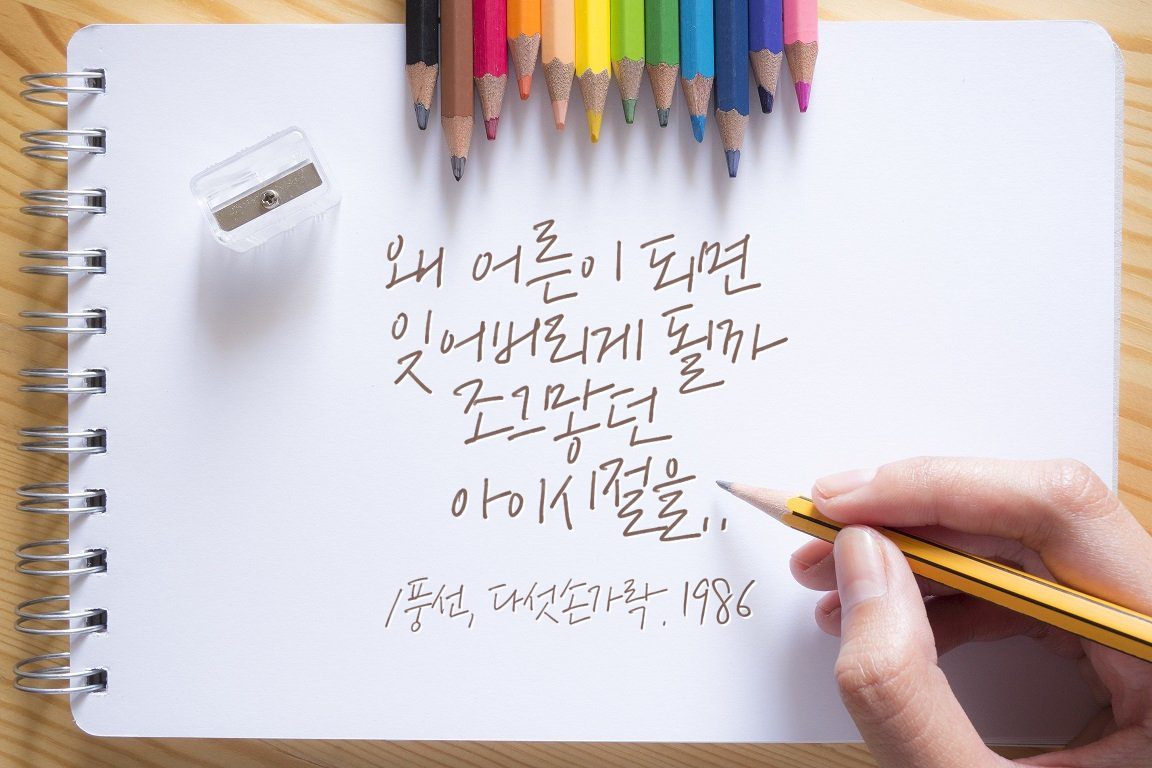 왜 어른이 되면
잊어버리게 될까
조그맣던
아이시절을..
/풍선, 다섯손가락. 1986